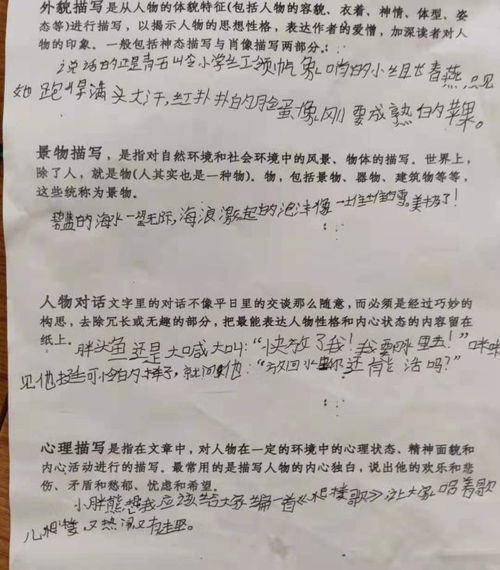 外貌描写是从人物的体貌特征(包括人物的容貌、衣着、神情、体型、姿
态等)进行描写，以揭示人物的思想性格，表达作者的爱憎，加深读者对人
物的印象。一般包括神态描写与肖像描写两部分。
说话的正是青石山小学红领巾 的小 春燕,只见
她跑 满头大汗,红扑扑的脸蛋像刚要成熟的苹果。
景物描写，是指对自然环境和社会环境中的风景、物体的描写。世界上，
除了人，就是物(人其实也是一种物)。物，包括景物、器物、建筑物等等，
这些统称为景物。
的海水一望无际,海浪激起的泡沫像一堆堆的雪,美 了!
人物对话 文字里的对话不像平日里的交谈那么随意，而必须是经过巧妙的
构思，去除冗长或无趣的部分，把最能表达人物性格和内心状态的内容留在
纸上。
胖头鱼还是大喊大叫:“快放了我!我要 水里去!”咪咪
见他挺可怜的 ,就问 他:“放回水 你还能活吗?”
心理描写是指在文章中，对人物在一定的环境中的心理状态、精神面貌和
内心活动进行的描写。最常用的是描写人物的内心独白，说出他的欢乐和悲
伤、矛盾和愁郁、忧虑和希望。
小胖熊想我应该给大家编一首《 楼歌》让大家唱着歌
儿 楼,又热闹又有趣。